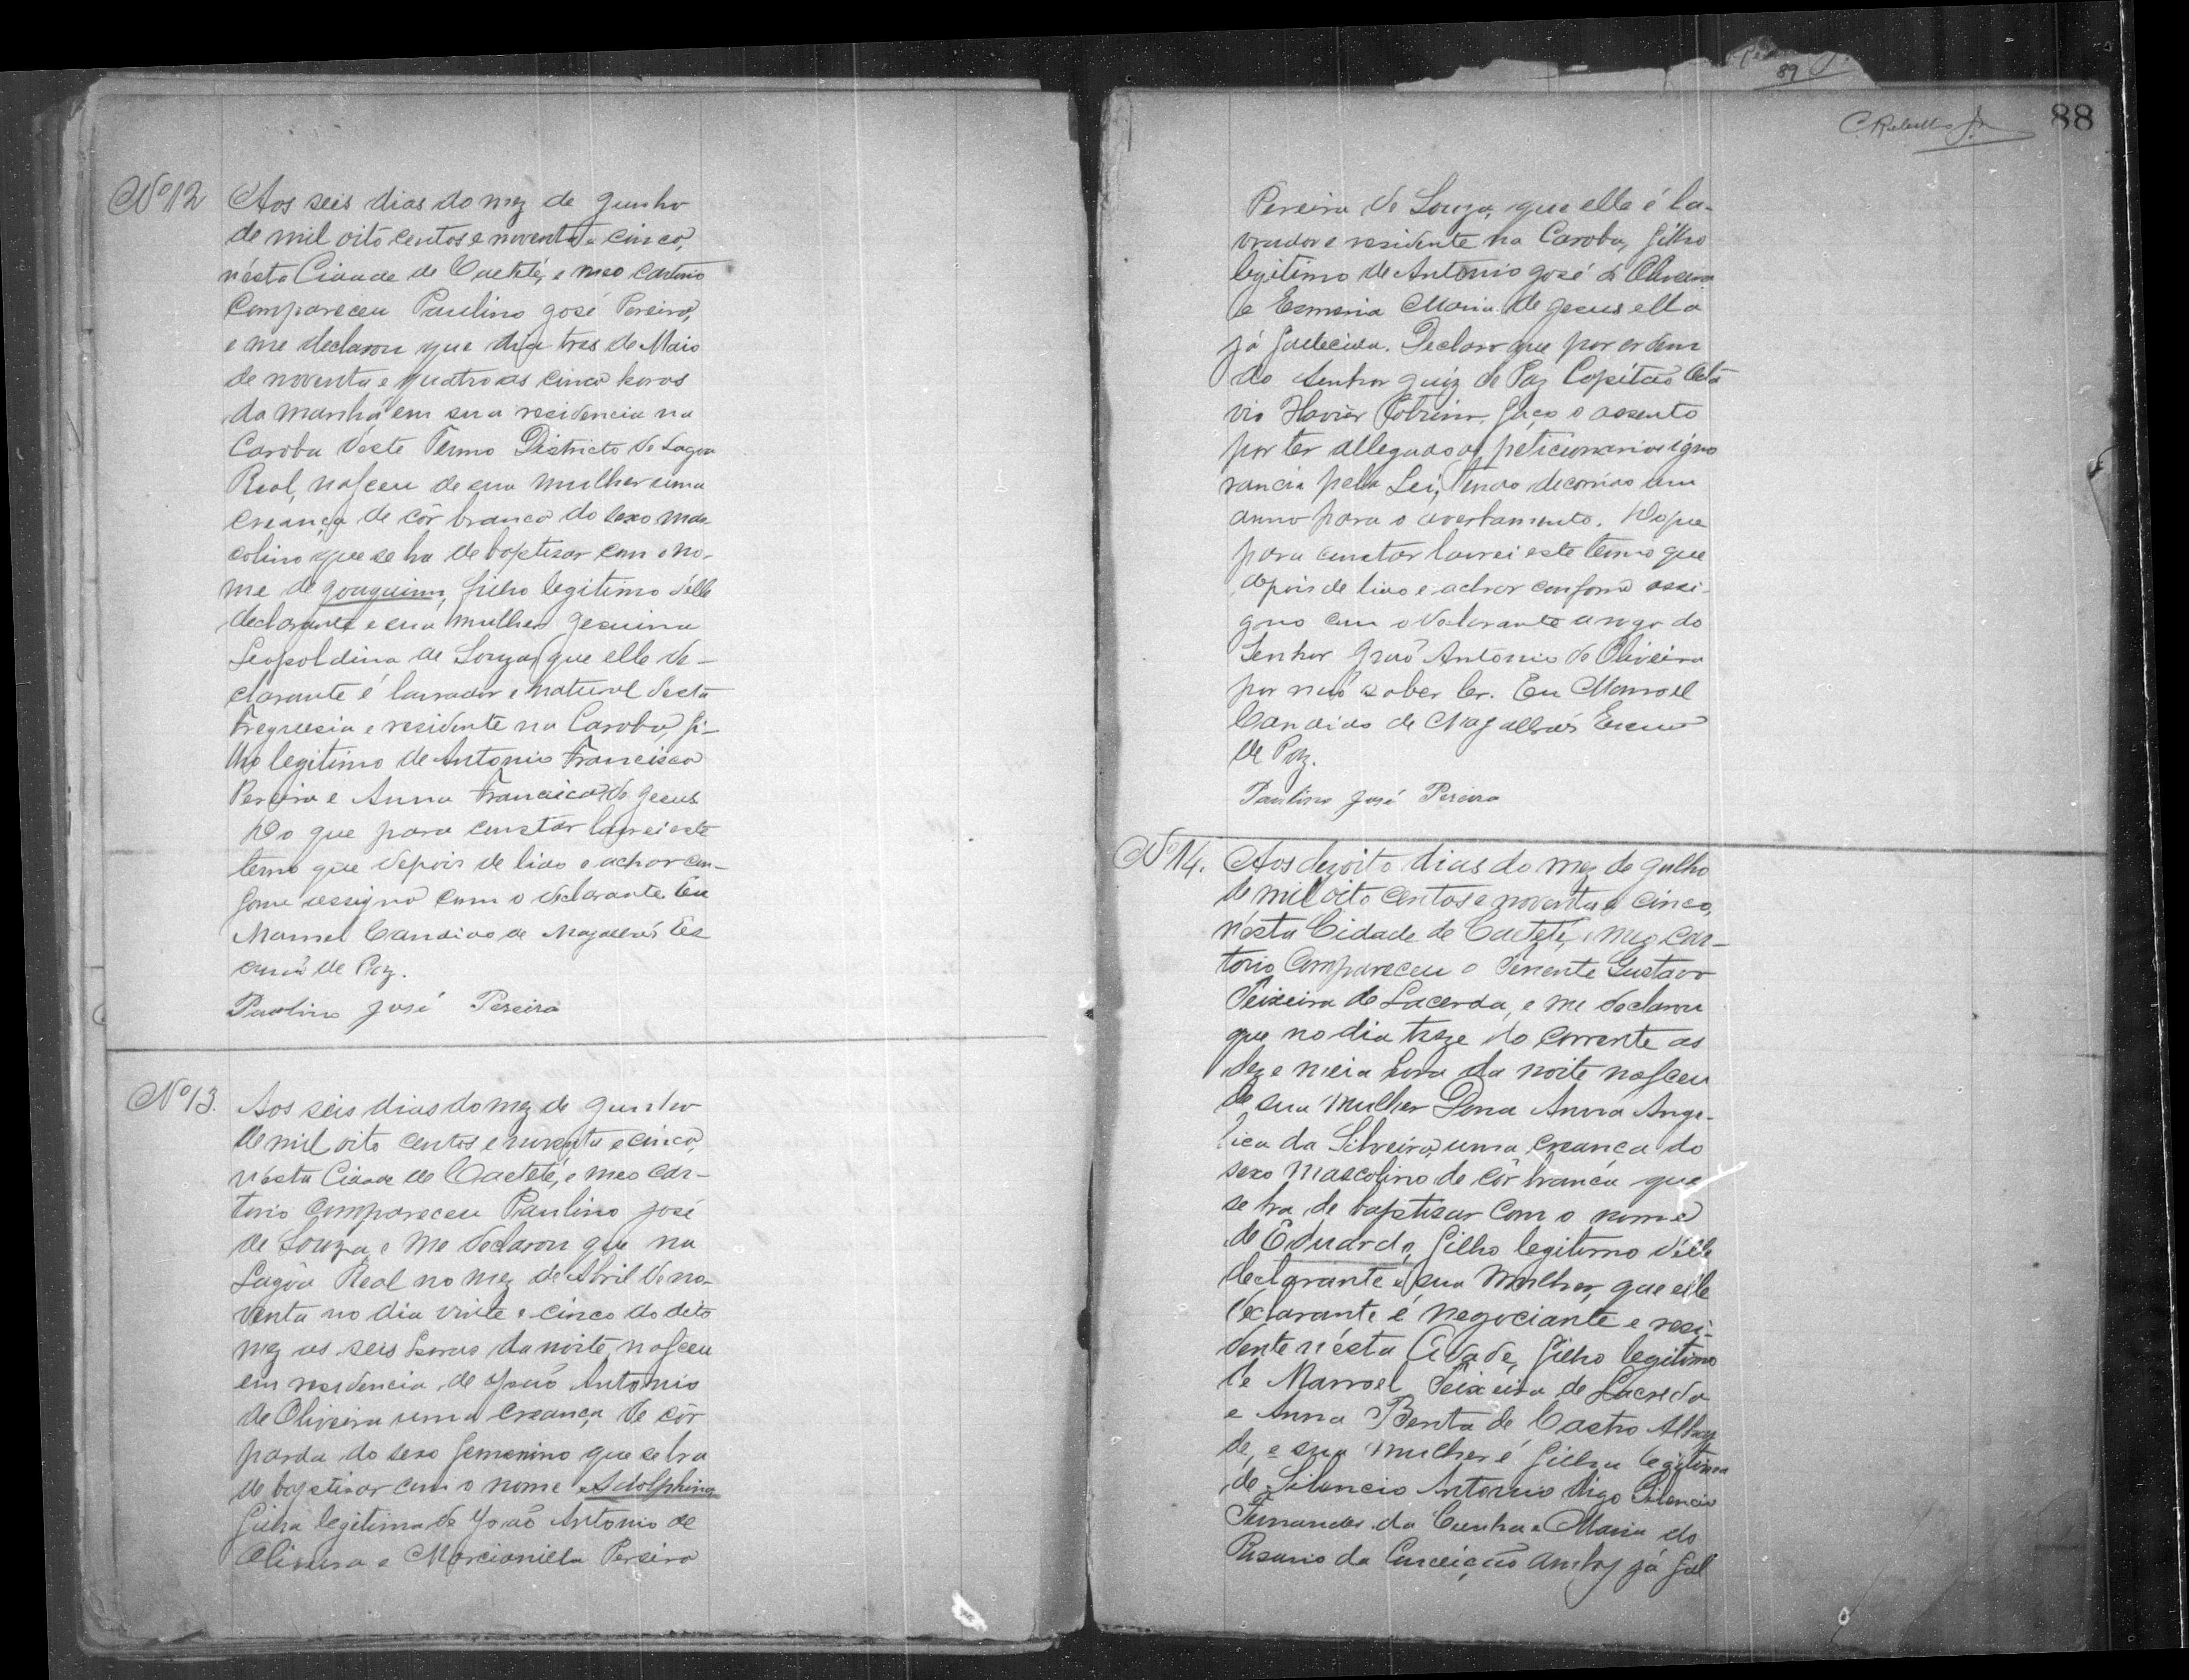 Nº 12
Aos seis dias do mez de Junho
de mil oito centos e noventa e cinco,
n'ésta Cidade de Caeteté, e meo cartorio
Compareceu Paulino José Pereira,
e me declarou que dia tres de Maio
de noventa e quatro as cinco horas
da manhã em sua residencia na
Caroba deste Termo Districto de Lagoa
Real, nasceu de sua mulher uma
creança de côr branca do sexo mas
colino que se ha de baptisar com o no-
me de Joaquim, filho legitimo d'elle
declarante e sua mulher Jesuina
Leopoldina de Souza, que elle de-
clarante é lavrador e natural desta
Freguesia e residente na Caroba, fi-
lho legitimo de Antonio Francisco
Pereira e Anna Francisca de Jesus
Do que para constar lavrei este
termo que depois de lido e achar con-
forme assigno com o declarante. Eu
Manoel Candido de Magalhães Es
crivã de Paz.
Paulino José Pereira
Nº 13.
Aos seis dias do mez de Junho
de mil oito centos e noventa e cinco,
n'ésta Cidade de Caeteté, e meo car-
torio compareceu Paulino José
de Souza, e me declarou que na
Lagôa Real no mez de Abril de no-
venta no dia vinte e cinco do dito
mez as seis horas da noite, nasceu
em residencia de João Antonio
de Oliveira uma creança de côr
parda do sexo femenino que se ha
de baptisar com o nome Adolphina
filha legitima de João Antonio de
Oliveira e Marcionilla Pereira
89
C. Rebello Jr.
88
Pereira de Souza, que elle é la-
vrador e residente na Caroba, filho
legitimo de Antonio José de Oliveira
e Esmeria Maria de Jesus ella
já falecida. Declaro que por ordem
do Senhor Juiz de Paz Capitão Octa
vio Xavier Cotrim faço o assento
por ter allegado o peticionario igno
rancia pela Lei, tendo decorrido um
anno para o acertamento. Do que
para constar lavrei este termo que
depois de lido e achar conforme assi-
gno com o declarante arogo do
Senhor João Antonio de Oliveira
por não saber ler. Eu Manoel
Candido de Magalhães Escrivã
de Paz.
Paulino José Pereira
Nº 14.
Aos dezoito dias do mez de Julho
de mil oito centos e noventa e cinco,
n'ésta Cidade de Caeteté, e meo car-
torio Compareceu o Tenente Gustavo
Teixeira de Lacerda, e me declarou
que no dia treze do corrente as
dez e meia hora da noite nasceu
de sua mulher Dona Anna Ange-
lica da Silveira, uma creança do
sexo mascolino de côr branca que
se ha de baptisar com o nome
de Eduardo, filho legitimo d'elle
declarante e sua mulher, que elle
declarante é negociante e resi-
dente n'ésta Cidade, filho legitimo
de Manoel Teixeira de Lacerda
e Anna Benta de Castro
de, e sua mulher é filha legitima
de Silencio Antonio digo Silencio
Fernandes da Cunha e Maria do
Rosario da Conceição ambos já fal